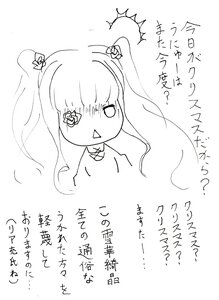 今日がクリスマスだから?
うにゅーは
また今度?
クリスマス?
クリスマス?
クリスマス?
ますたー…、
この雪華綺晶
全ての通俗な
うかれた方々を
軽蔑して
おりますのに…
(リア充氏ね)